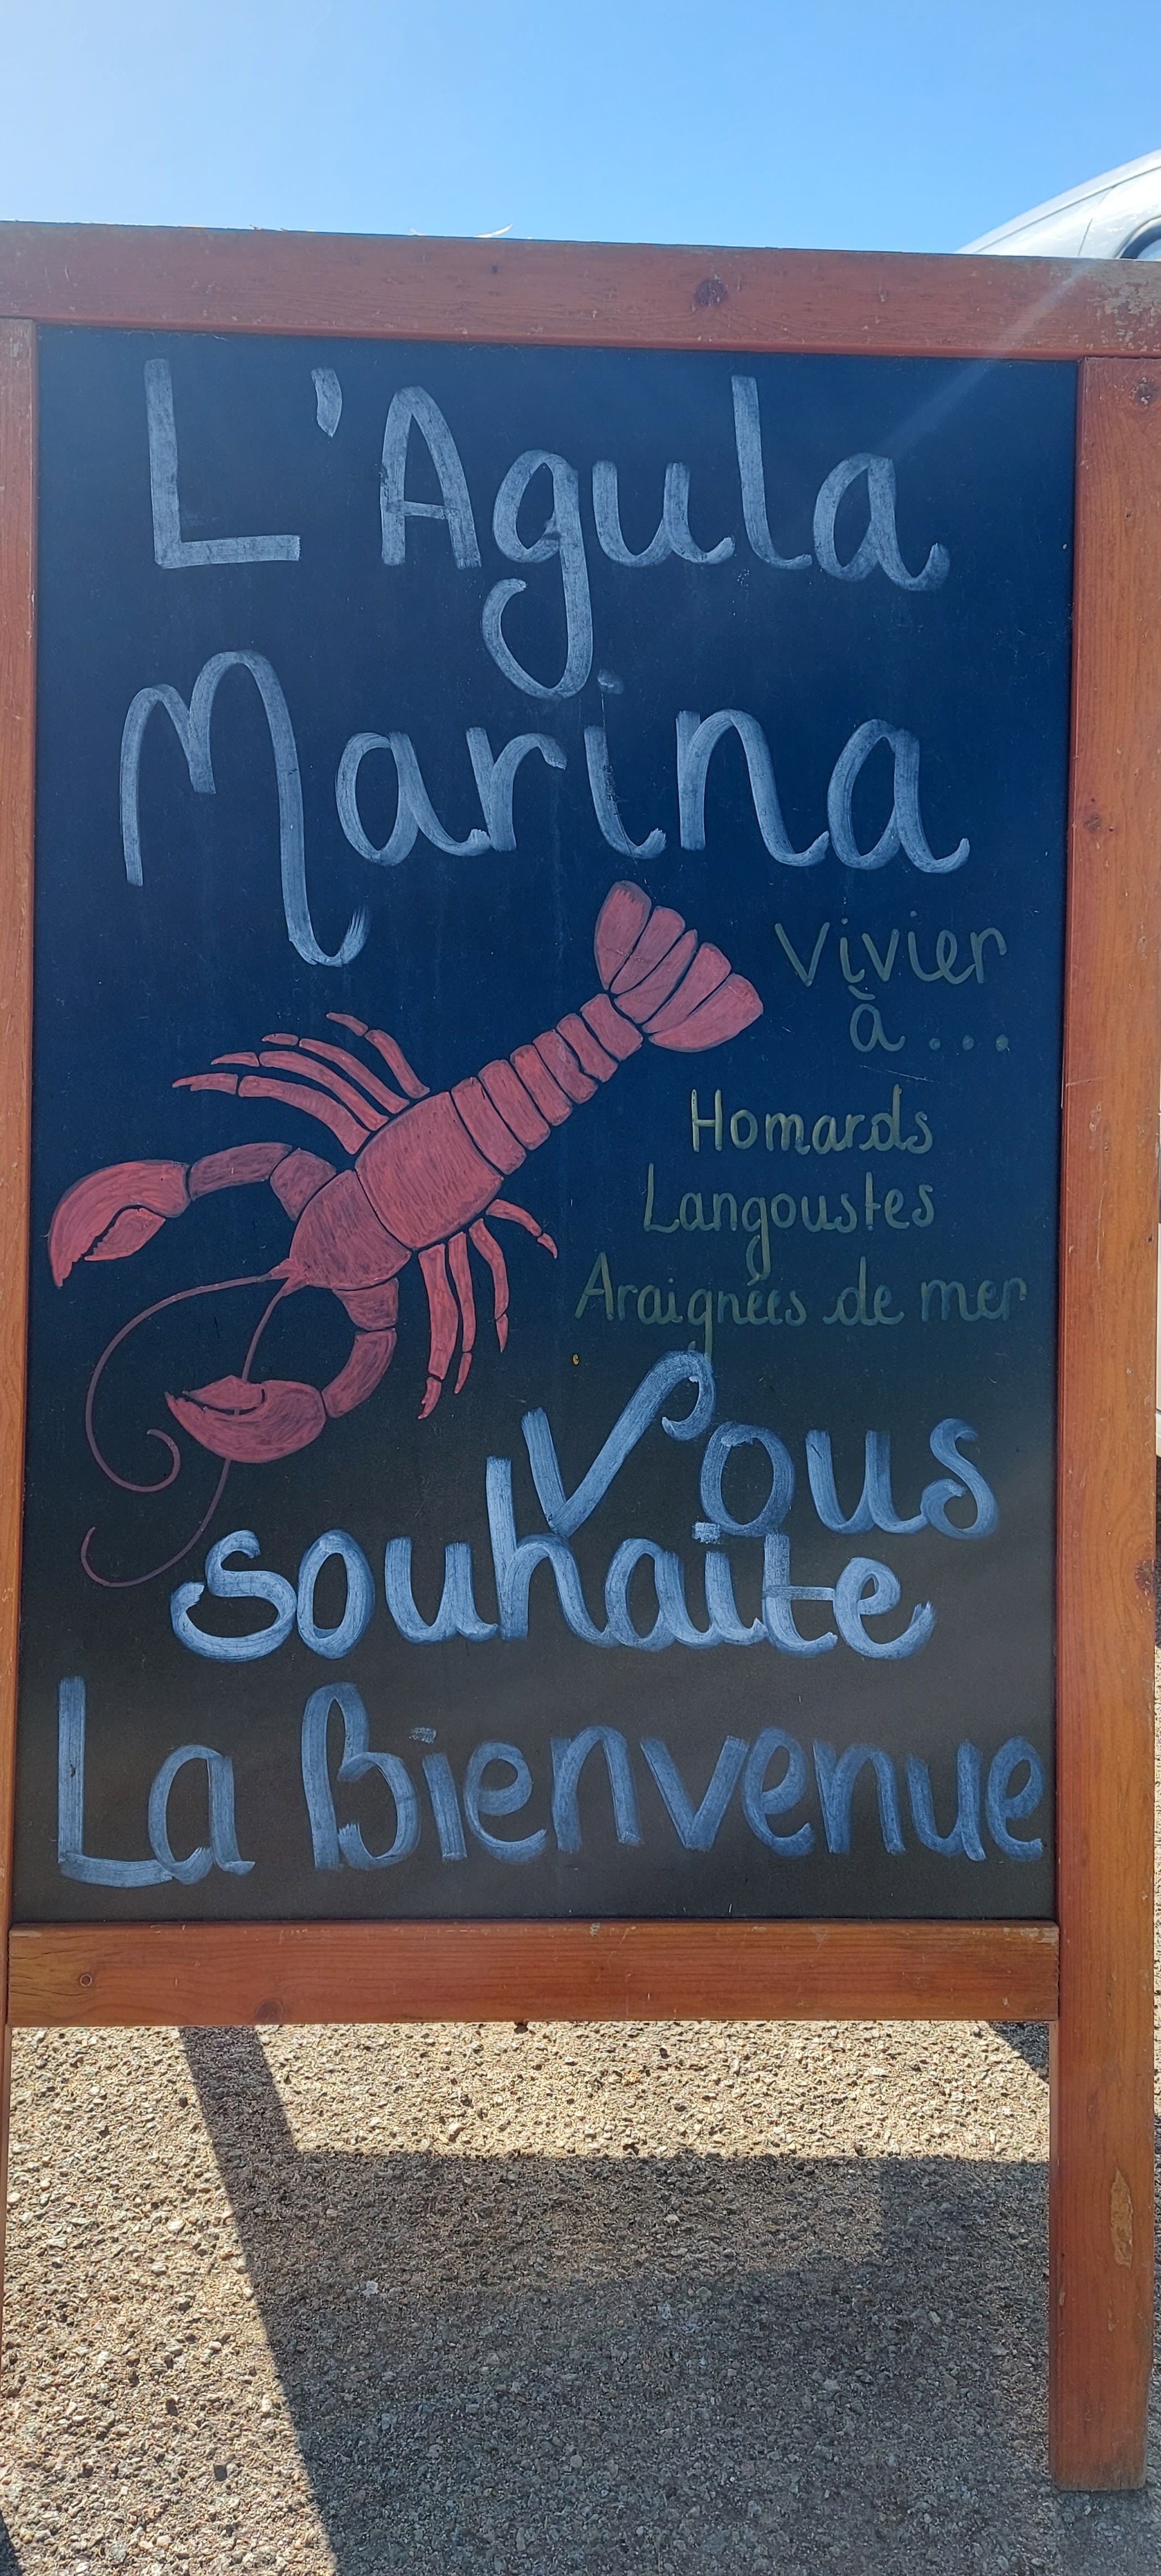 L'Agula
Marina
Vivier
à...
Homards
Langoustes
Araignées de mer
Vous
souhaite
La Bienvenue